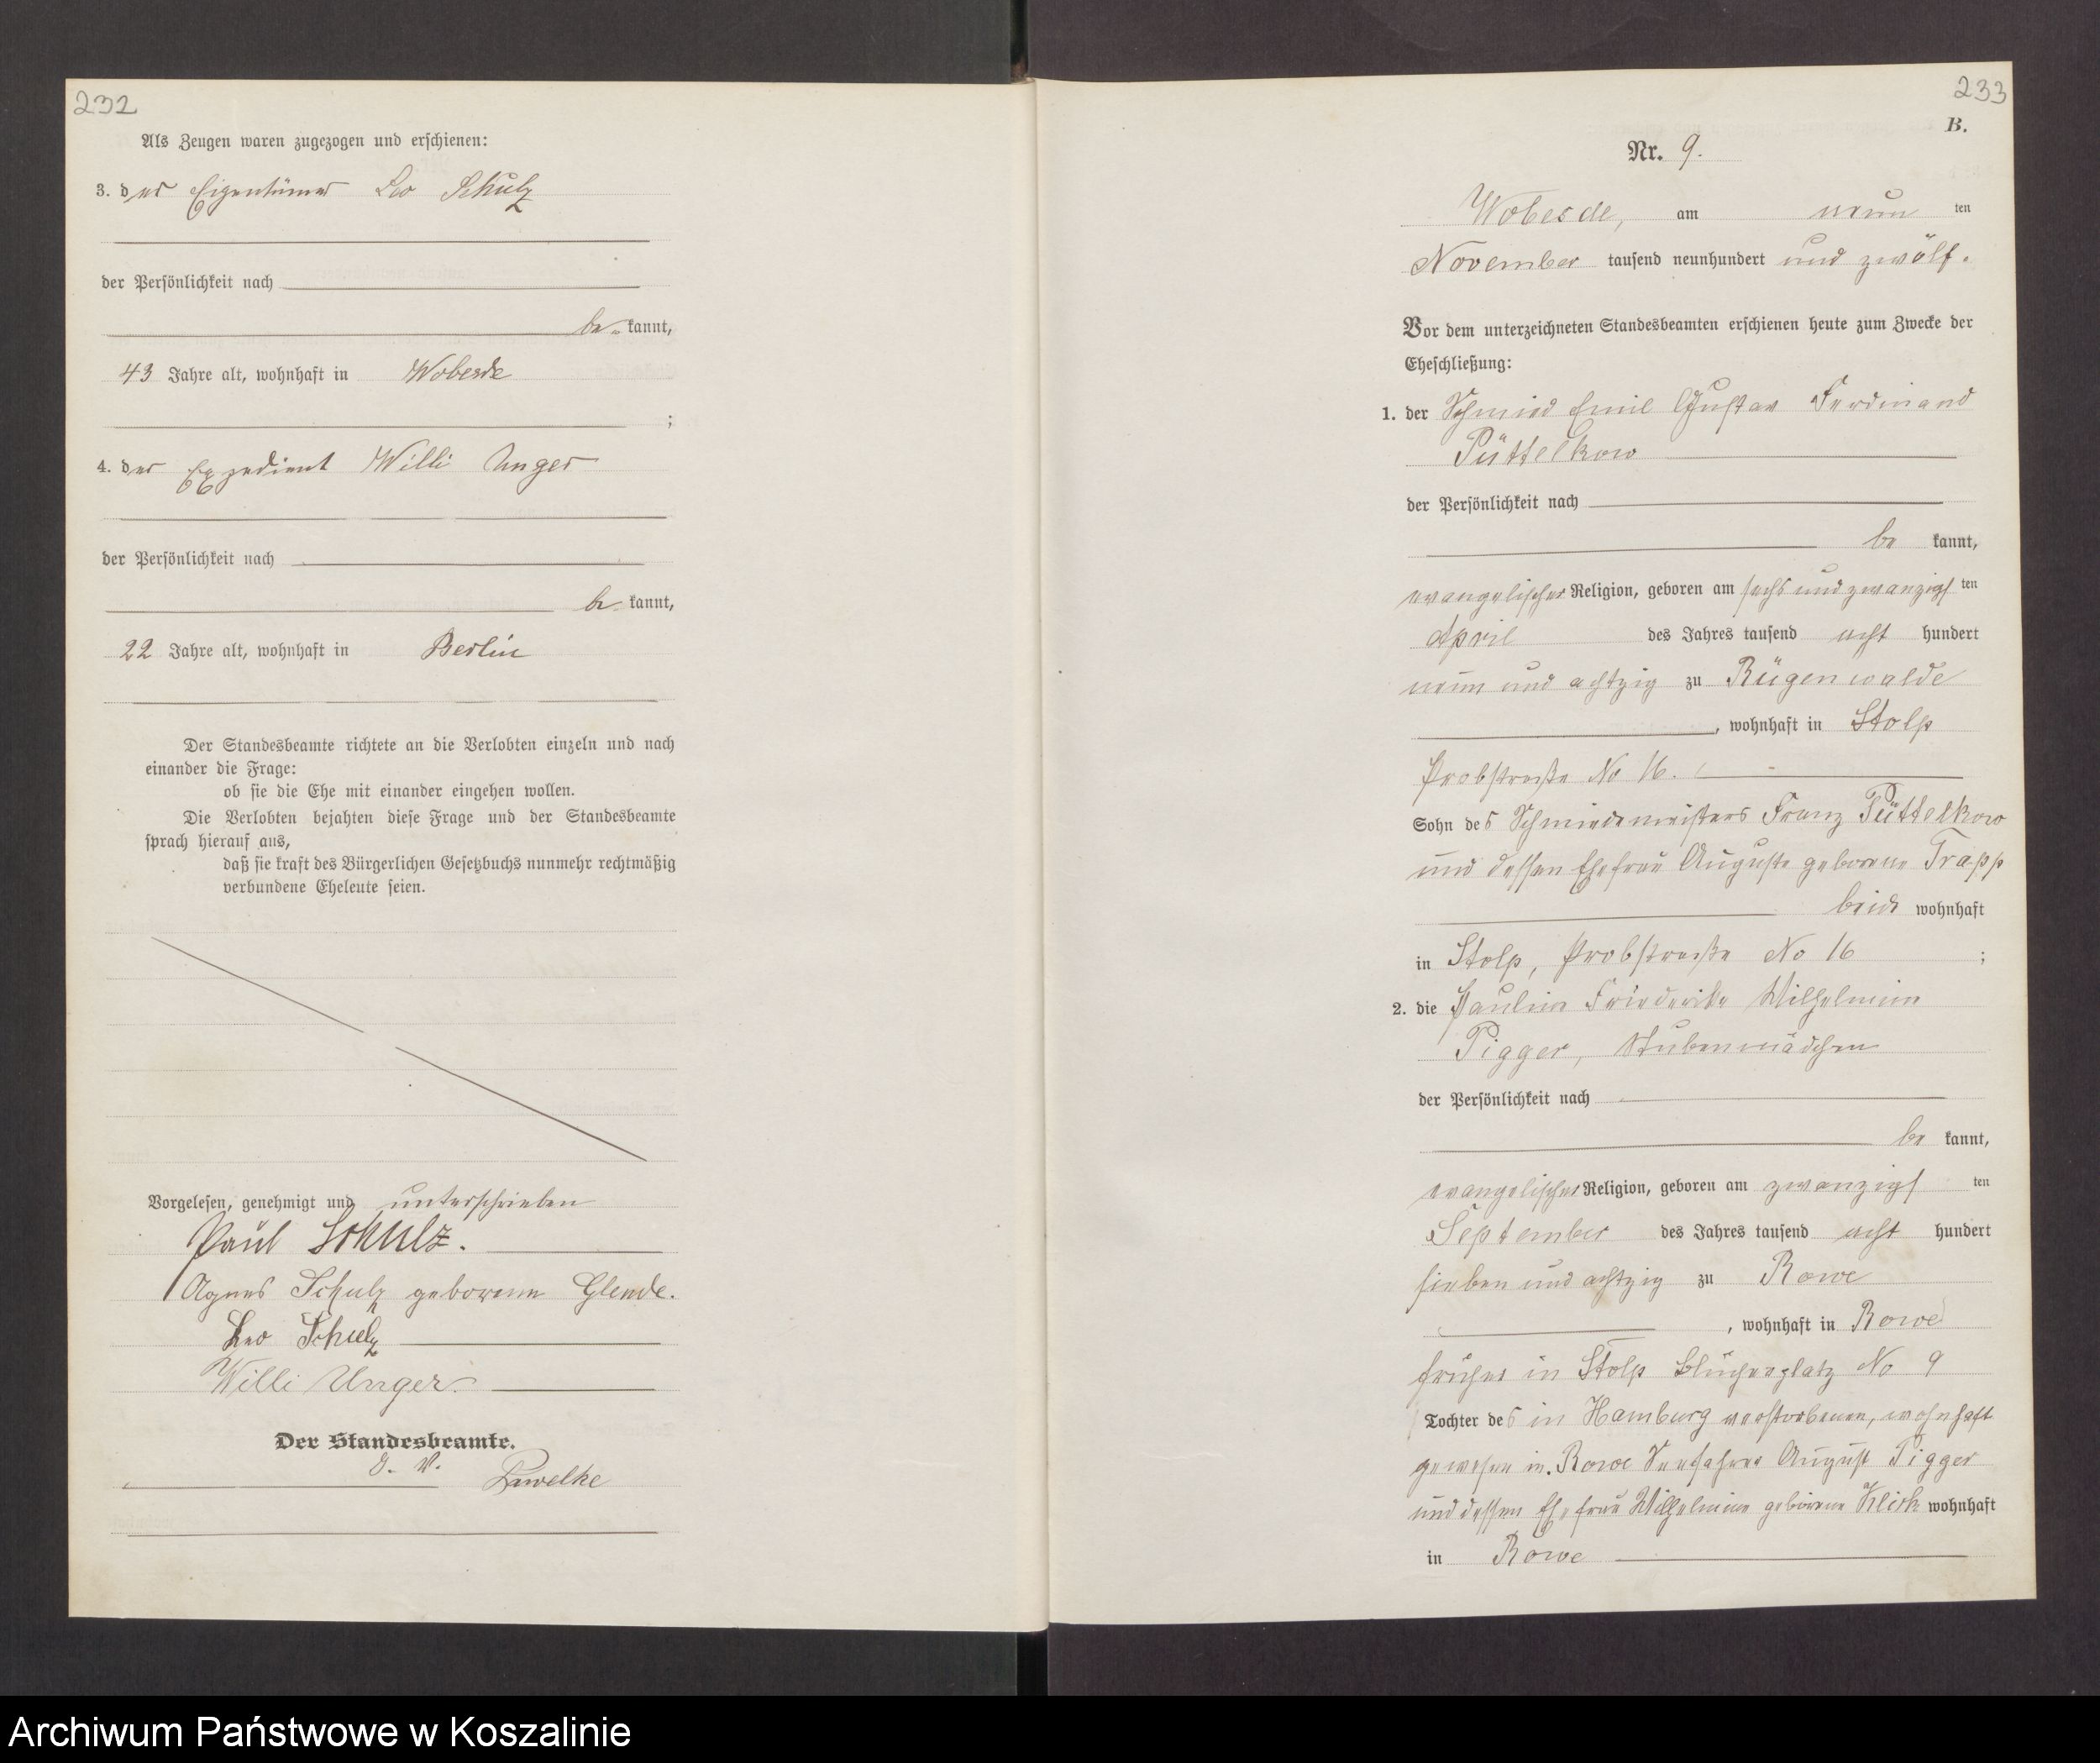 232
Als Zeugen waren zugezogen und erschienen:
3. der Eigentümer Leo Schulz
der Persönlichkeit nach
be- kannt,
43 Jahre alt, wohnhaft in Wobesde
;
4. der Expedient Willi Unger
der Persönlichkeit nach
be- kannt,
22 Jahre alt, wohnhaft in Berlin
Der Standesbeamte richtete an die Verlobten einzeln und nach
einander die Frage:
ob sie die Ehe mit einander eingehen wollen.
Die Verlobten bejahten diese Frage und der Standesbeamte
sprach hierauf aus,
daß sie kraft des Bürgerlichen Gesetzbuchs nunmehr rechtmäßig
verbundene Eheleute seien.
Vorgelesen, genehmigt und unterschrieben
Paul Schulz.
Agnes Schulz geborene Glende.
Leo Schulz
Willi Unger.
Der Standesbeamte.
I. V.
233
B.
Nr. 9.
Wobesde, am neun ten
November tausend neunhundert und zwölf.
Vor dem unterzeichneten Standesbeamten erschienen heute zum Zwecke der
Eheschließung:
1. der Schmied Emil Gustav Ferdinand
Püttelkow
der Persönlichkeit nach
be kannt,
evangelischer Religion, geboren am sechs und zwanzigs ten
April des Jahres tausend acht hundert
neun und achtzig zu Rügenwalde
, wohnhaft in Stolp
Probstraße No 16.
Sohn des Schmiedemeisters Franz Püttelkow
und dessen Ehefrau Auguste geborene Trapp
beide wohnhaft
in Stolp, Probstraße No 16 ;
2. die Pauline Friederike Wilhelmine
Pigger, Stubenmädchen
der Persönlichkeit nach
be kannt,
evangelischer Religion, geboren am zwanzigs ten
September des Jahres tausend acht hundert
sieben und achtzig zu Rowe
, wohnhaft in Rowe
früher in Stolp Blücherplatz No 9
Tochter des in Hamburg verstorbenen, wohnhaft
gewesen in Rowe Seefahrer August Pigger
und dessen Ehefrau Wilhelmine geborene wohnhaft
in Rowe
Archiwum Państwowe w Koszalinie